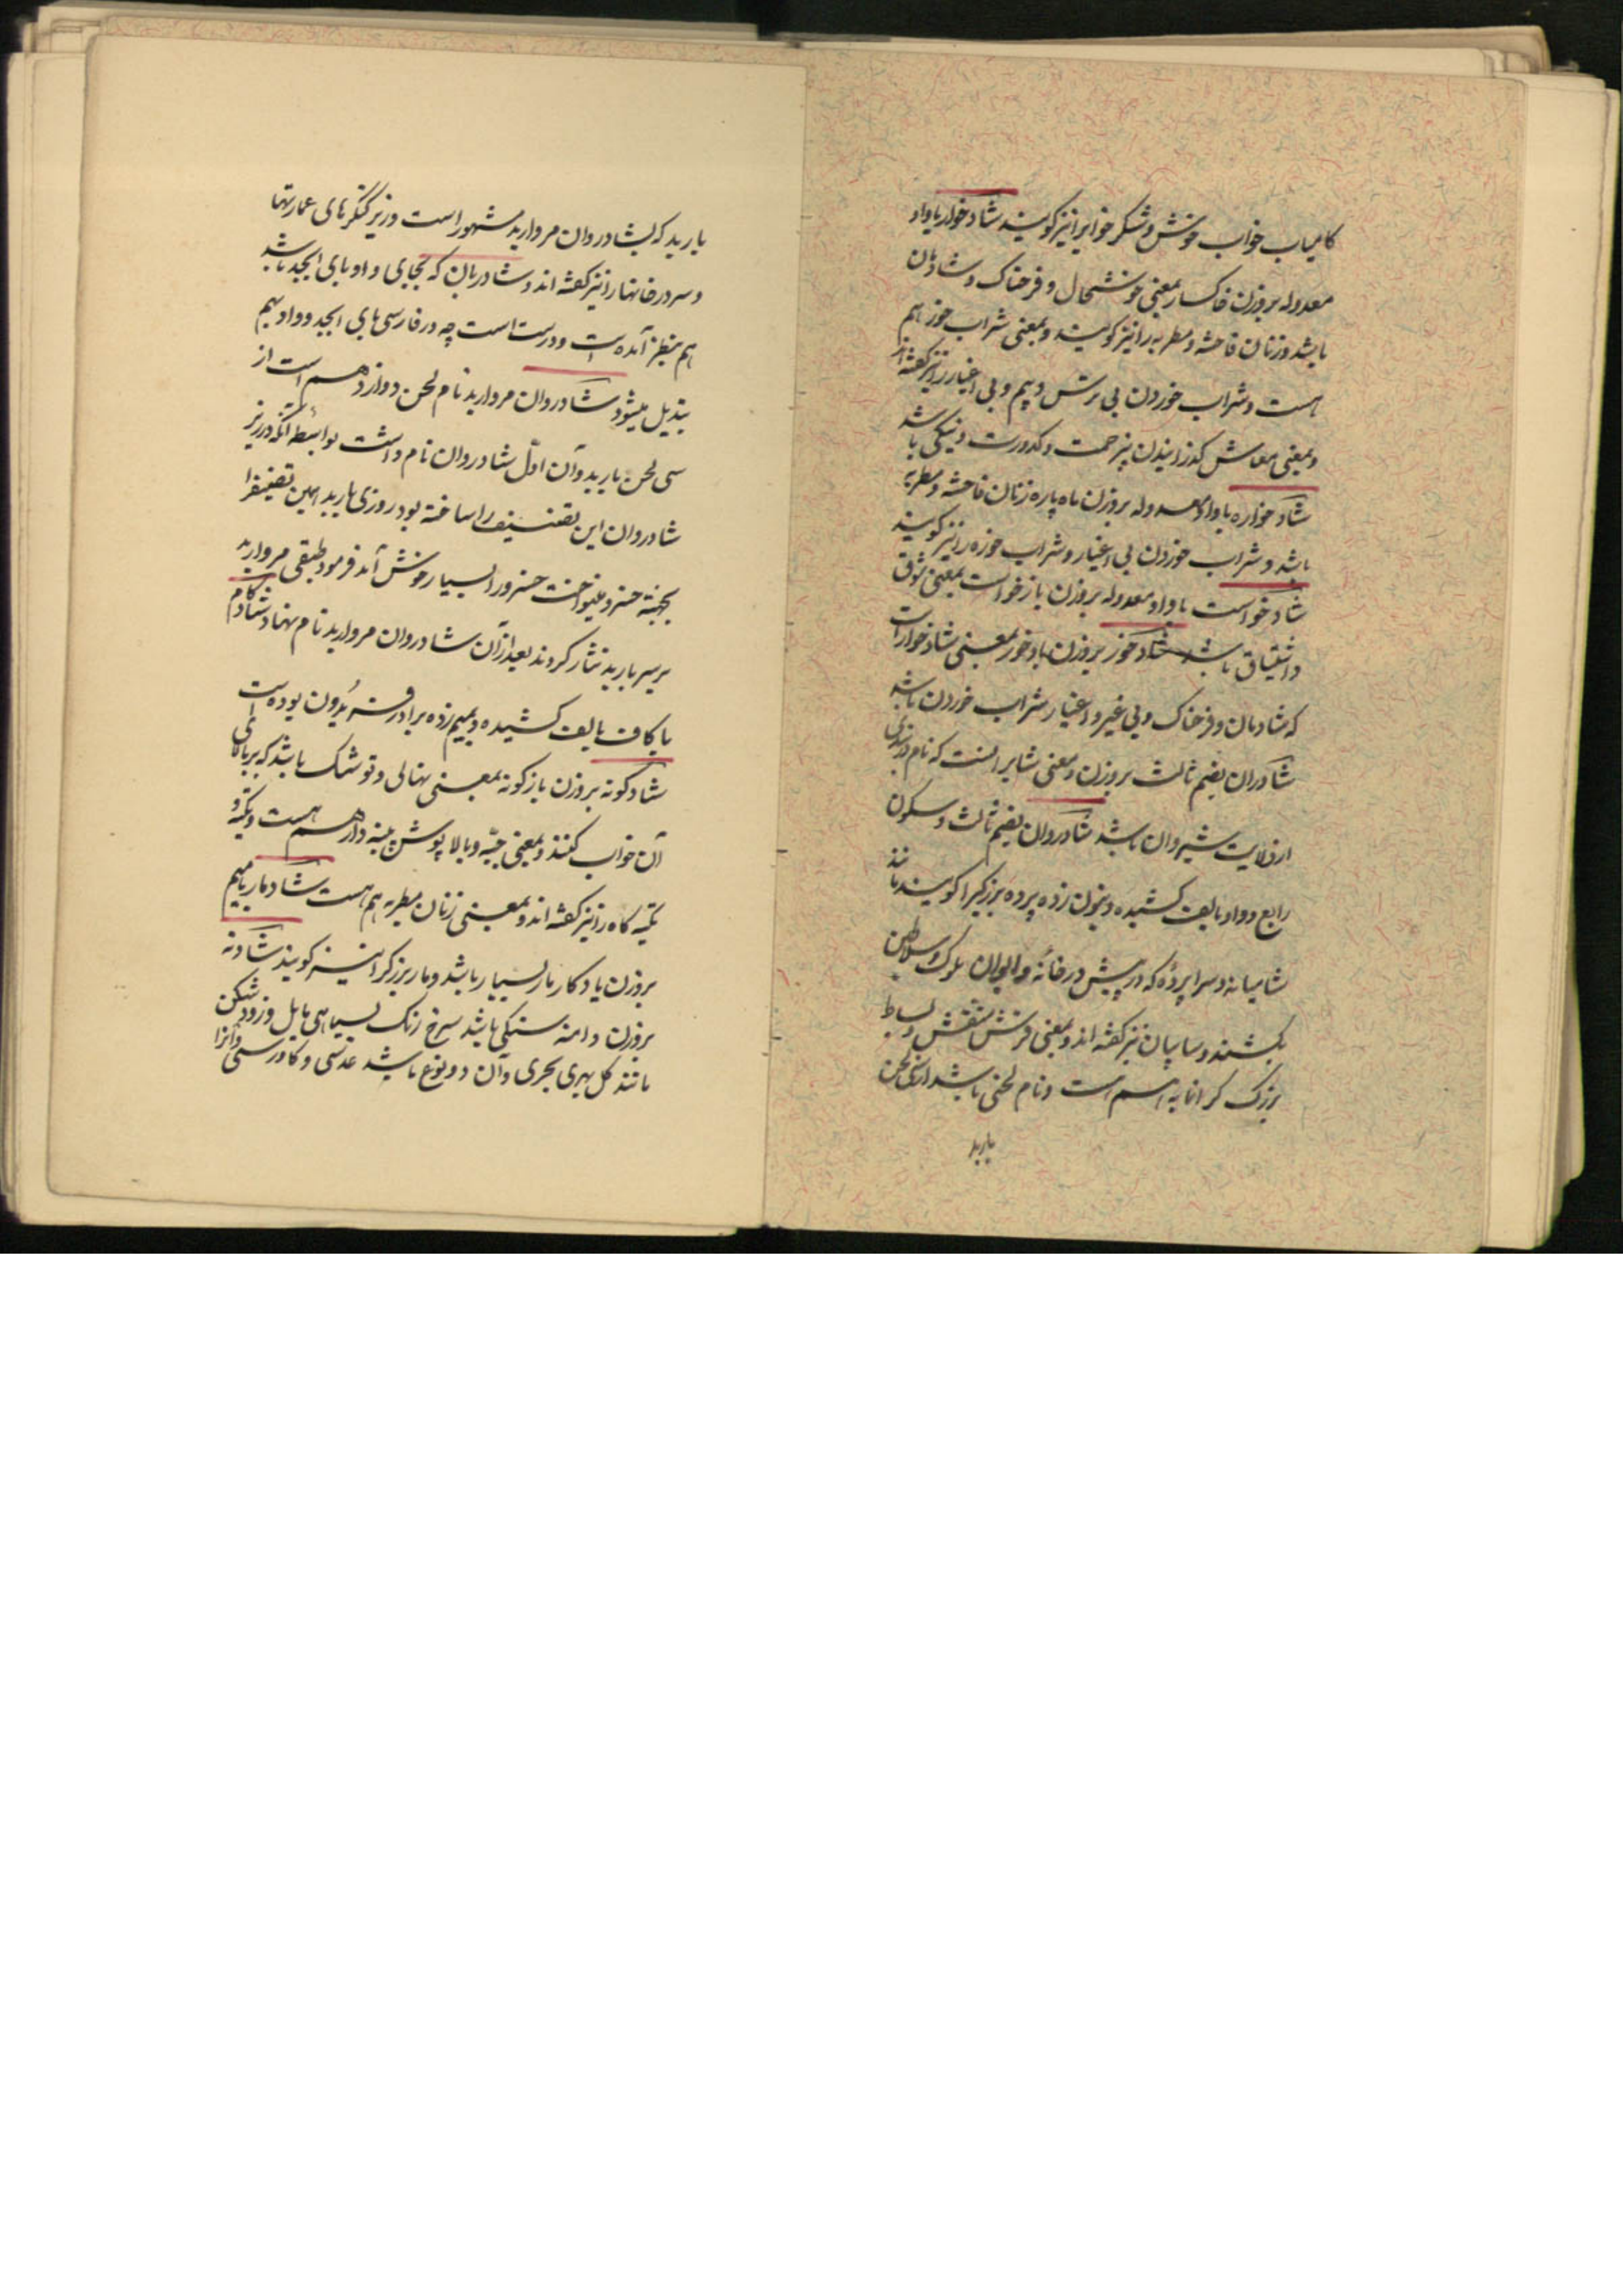 کامیاب خواب خوش و شکر خوابرا نیز کویند شاد خوار با واو
معدوله بروزن خاکسار بمعنی خوشحال و فرحناک و شادمان
باشد و زنان فاحشه و مطربه را نیز کویند و بمعنی شراب خور هم
هست و شراب خوردن بی ترس و بیم و بی اغیار را نیز کفته‌اند
و بمعنی معاش کذرانیدن بیزحمت و کدورت و نیکی باشد
شاد خواره با واو معدوله بروزن ماه پاره زنان فاحشه و مطربه
باشد و شراب خوردن بی اغیار و شراب خوره را نیز کویند
شاد خواست با واو معدوله بروزن بازخواست بمعنی شوق
و اشتیاق باشد شاد خور بروزن بادخور بمعنی شادخوارست
که شادمان و فرحناک و بی غیر و اغیار شراب خوردن باشد
شادران بضم ثالث بروزن و معنی شابرانست که نام
از ولایت شیروان باشد شادروان بضم ثالث و سکون
رابع و واو بالف کشیده و بنون زده پرده بزرکیرا کویند مانند
شامیانه و سراپرده که در پیش در خانه و ایوان ملوک و سلاطین
بکشند و سایبان نیز کفته اند و بمعنی فرش منقش و بساط
بزرک کرانمایه هم است و نام لحنی باشد از سی لحن
باربد
باربد که بشادروان مروارید مشهور است و زیر کنکرهای عمارتها
و سر در خانها را نیز کفته اند و شادربان که بجای واو بای ابجد باشد
هم بنظر آمده است و درست است چه در فارسی بای ابجد و واو بهم
تبدیل میشود شادروان مروارید نام لحن دوازدهم است از
سی لحن باربد و آن اول شادروان نام داشت بواسطه آنکه در زیر
شادروان این تصنیف را ساخته بود روزی باربد همین تصنیف را
بجهة خسرو مینواخت خسرو را بسیار خوش آمد فرمود طبقی مروارید
بر سر باربد نثار کردند بعد از آن شادروان مروارید نام نهاد شادکام
با کاف بالف کشیده و بمیم زده برادر فریدون بوده است
شادکونه بروزن بازکونه بمعنی نهالی و توشک باشد که بر بالای
آن خواب کنند و بمعنی جبه و بالا پوش پنبه دار هم هست و تکیه و
تکیه کاه را نیز کفته اند و بمعنی زنان مطربه هم هست شادمار بامیم
بروزن یادکار مار بسیار باشد و مار بزرکرا نیز کویند شادنه
بروزن دانه سنکی باشد سرخ رنک بسیاهی مایل و زود شکن
مانند کل بهری بحری و آن دو نوع باشد عدسی و کاورسی و آنرا